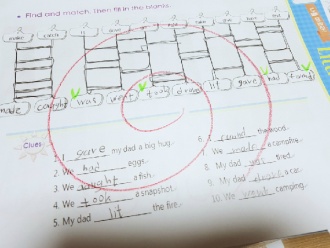 Find and match. Then fill in the blanks.
made caught was went took drove lit gave had found
Clues
1. gave my dad a big hug.
2. We had eggs.
3. We caught a fish.
4. We took a snapshot.
5. My dad lit the fire.
6. I found the wood.
7. We made a campfire.
8. My dad was tired.
9. My dad drove a car.
10. We went camping.